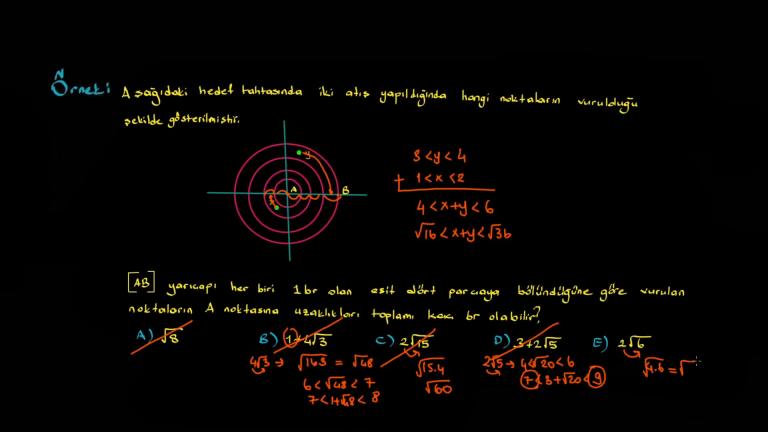 Örnek: Aşağıdaki hedef tahtasında iki atış yapıldığında hangi noktaların vurulduğu
şekilde gösterilmiştir.
y
A
B
x
3 < y < 4
+ 1 < x < 2
4 < x+y < 6
√16 < x+y < √36
[AB] yarıçapı her biri 1 br olan eşit dört parçaya bölündüğüne göre vurulan
noktaların A noktasına uzaklıkları toplamı kaç br olabilir?
A) √8 B) 1+4√3 C) 2√15 D) 3+2√5 E) 2√6
4√3 → √16·3 = √48
6 < √48 < 7
7 < 1+√48 < 8
√15.4
√60
2√5 → 4<√20<6
7<3+√20<9
√4.6 = √